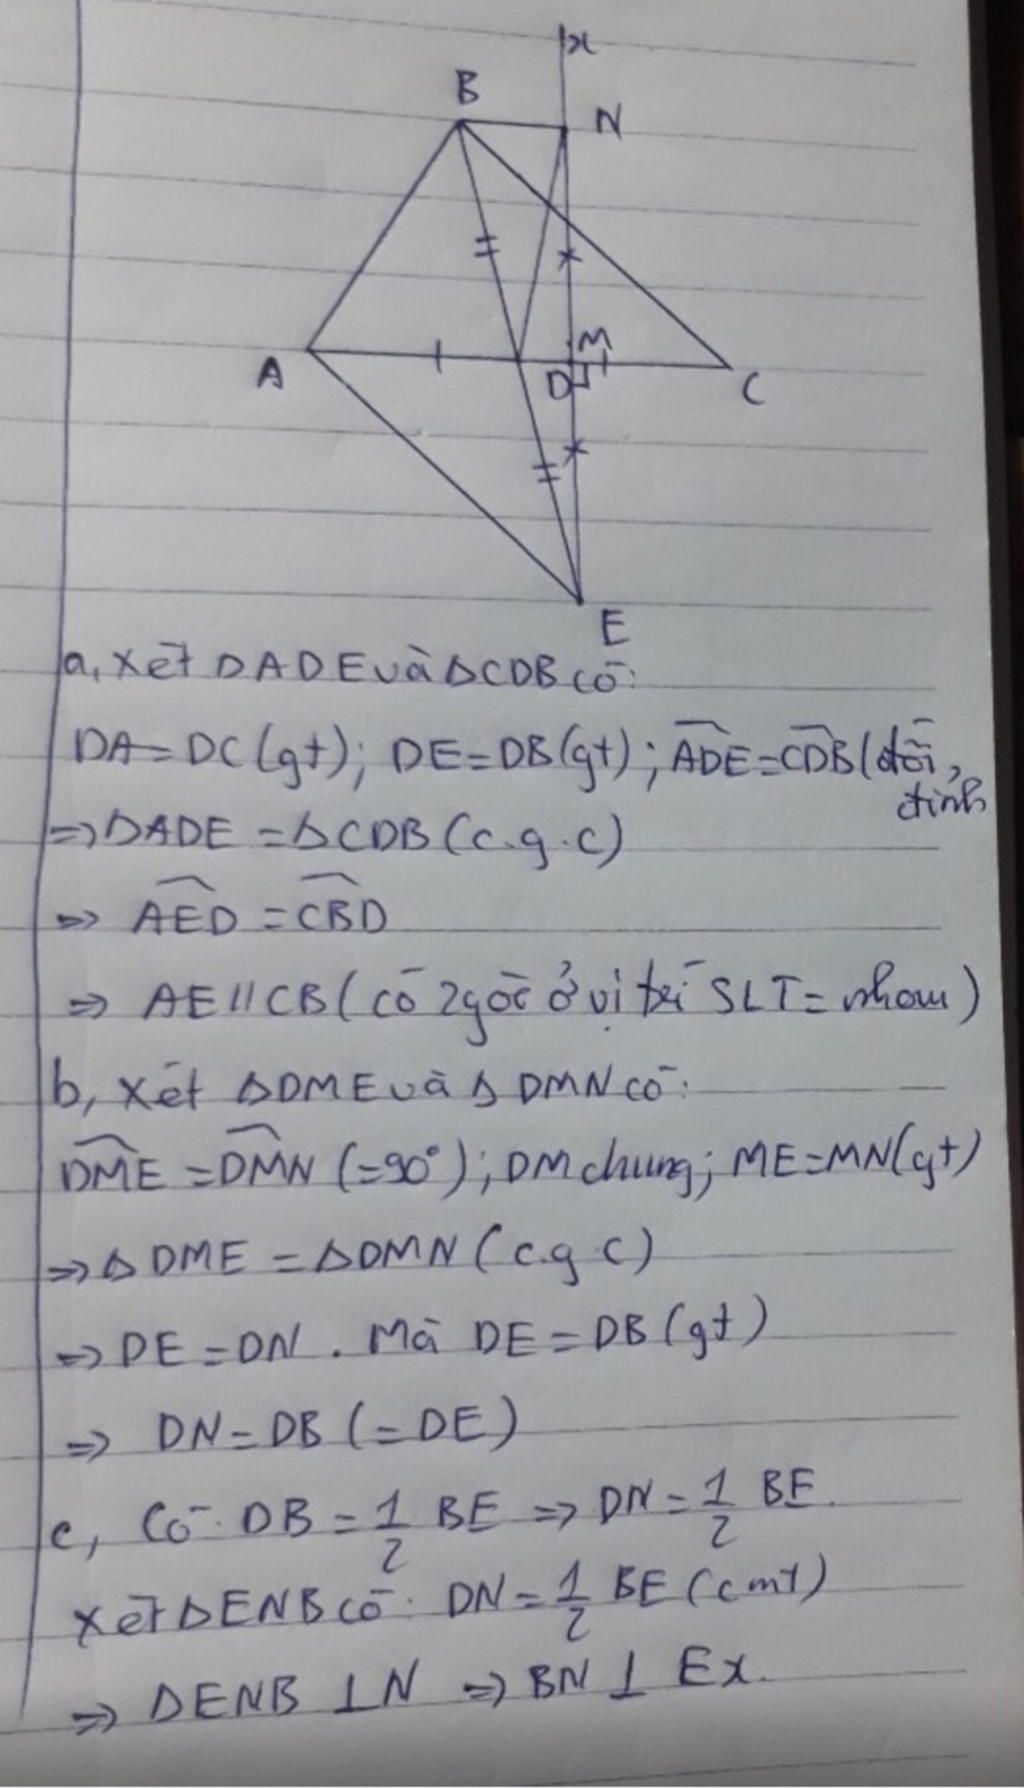 x
B
N
M
A
D
C
E
a, Xét ΔADE và ΔCDB có:
DA = DC (gt); DE = DB (gt); ADE = CDB (đối,
đỉnh
=> ΔADE = ΔCDB (c.g.c)
=> AED = CBD
=> AE // CB (có 2 góc ở vị trí SLT = nhau)
b, Xét ΔDME và ΔDMN có:
DME = DMN (=90°); DM chung; ME = MN (gt)
=> ΔDME = ΔDMN (c.g.c)
=> DE = DN. Mà DE = DB (gt)
=> DN = DB (= DE)
c, Có: DB = 1/2 BE => DN = 1/2 BE.
Xét ΔENB có: DN = 1/2 BE (cmt)
=> ΔENB ⊥ N => BN ⊥ Ex.